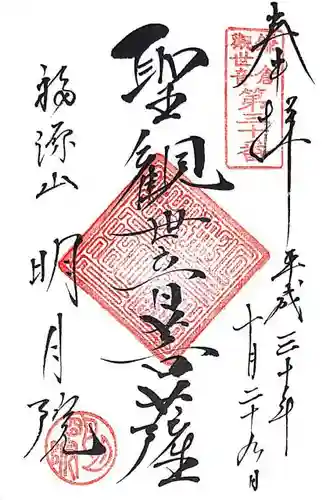 奉拝
鎌倉
観世音
第三十番
平成三十年
十月二十九日
聖観世音菩薩
福源山
明月院